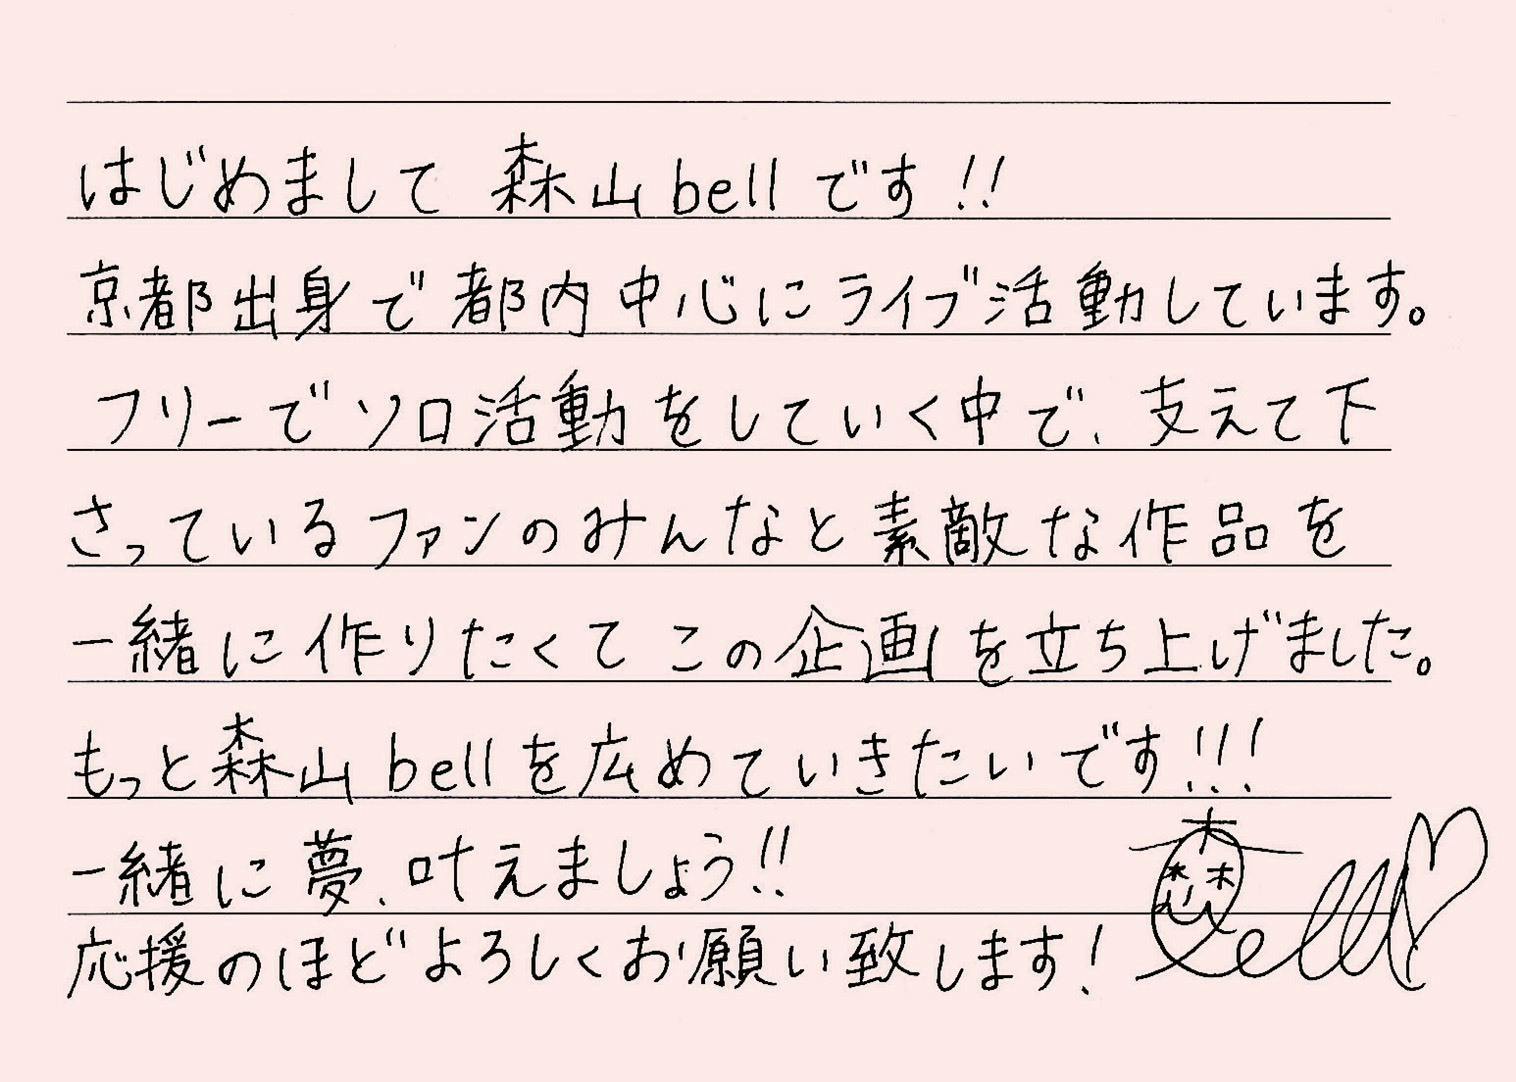 はじめまして 森山bellです!!
京都出身で都内中心にライブ活動しています。
フリーでソロ活動をしていく中で、支えて下
さっているファンのみんなと素敵な作品を
一緒に作りたくてこの企画を立ち上げました。
もっと森山bellを広めていきたいです!!!
一緒に夢、叶えましょう!!
応援のほどよろしくお願い致します!